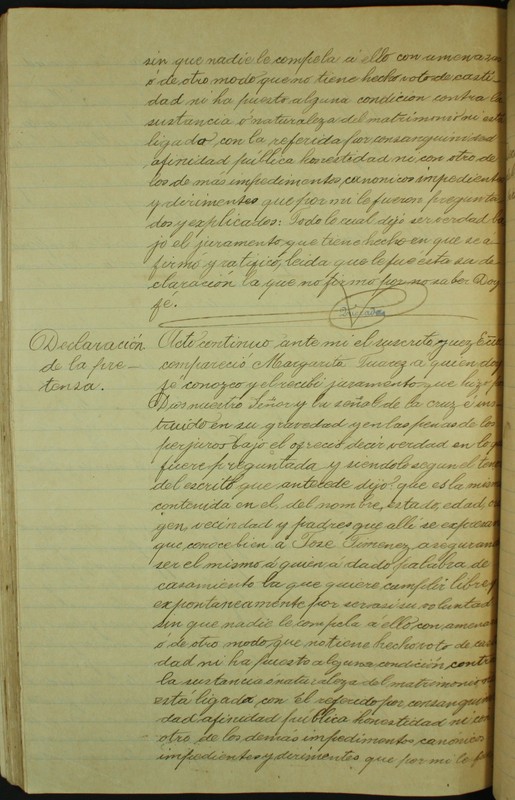 sin que nadie le compela á ello con amenazas
ó de otro modo que no tiene hecho voto de casti
dad ni ha puesto alguna condicion contra la
sustancia ó naturaleza del matrimonio ni está
ligado con la referida por consanguinidad
afinidad pública honestidad ni con otro de
los demás impedimentos canonicos impedientes
y dirimentes que por mi le fueron pregunta
dos y explicados: Todo lo cual dijo ser verdad ba
jo el juramento que tiene hecho en que se a
firmó y ratificó, leida que le fue esta su de
claración la que no firmó por no saber Doy
fé.
Declaración
de la pre-
tensa.
Acto continuo ante mi el suscrito Juez
compareció Margarita Juarez á quien doy
fe conozco y el recibí juramento que hizo por
Dios nuestro Señor y la señal de la cruz é ins
truido en su gravedad y en las penas de los
perjuros, bajo el ofreció decir verdad en lo que
fuere preguntada y siendolo segun el tenor
del escrito que antecede dijo: que es la misma
contenida en el, del nombre, estado, edad, ori
gen, vecindad y padres que alli se expresan
que conoce bien á José Timenez, asegurando
ser el mismo á quien á dado palabra de
casamiento la que quiere cumplir libre y
expontaneamente por ser asi su voluntad
sin que nadie le compela á ello con amenaza
ó de otro modo, que no tiene hecho voto de casti
dad ni ha puesto alguna condición contra
la sustancia ó naturaleza del matrimonio ni
está ligada con el referido por consanguini
dad afinidad pública honestidad ni con
otro de los demás impedimentos canónicos
impedientes y dirimentes que por mi le fueron